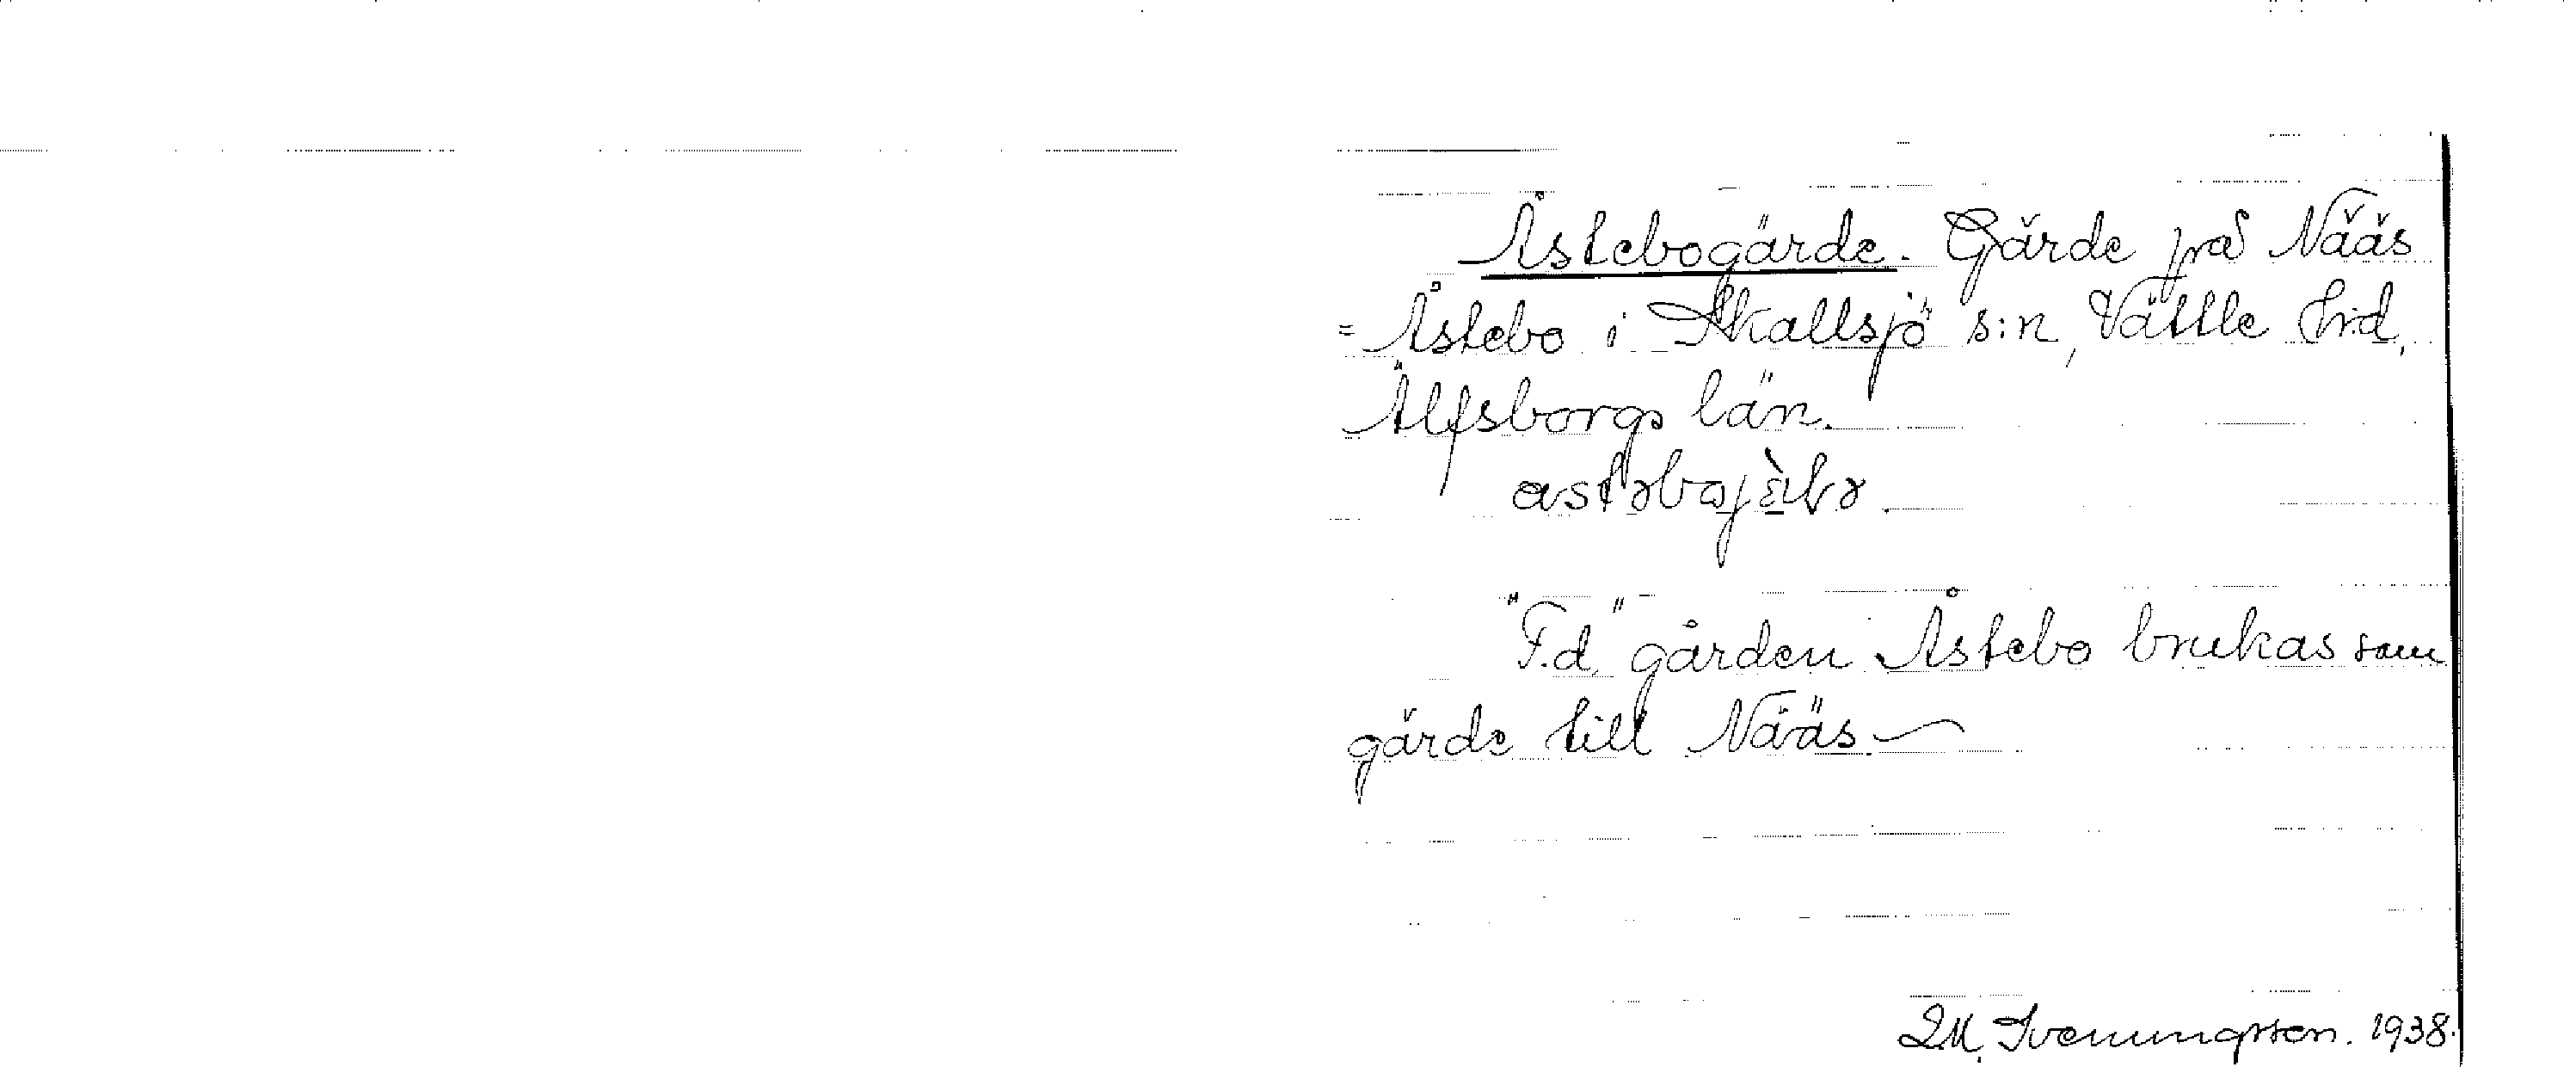 Åstebogärde. Gärde på Nääs
= Åstebo i Skallsjö s:n, Vättle hrd,
Älfsborgs län.
"F.d." gården Åstebo brukas som
gärde till Nääs
Svenningsson. 1938.